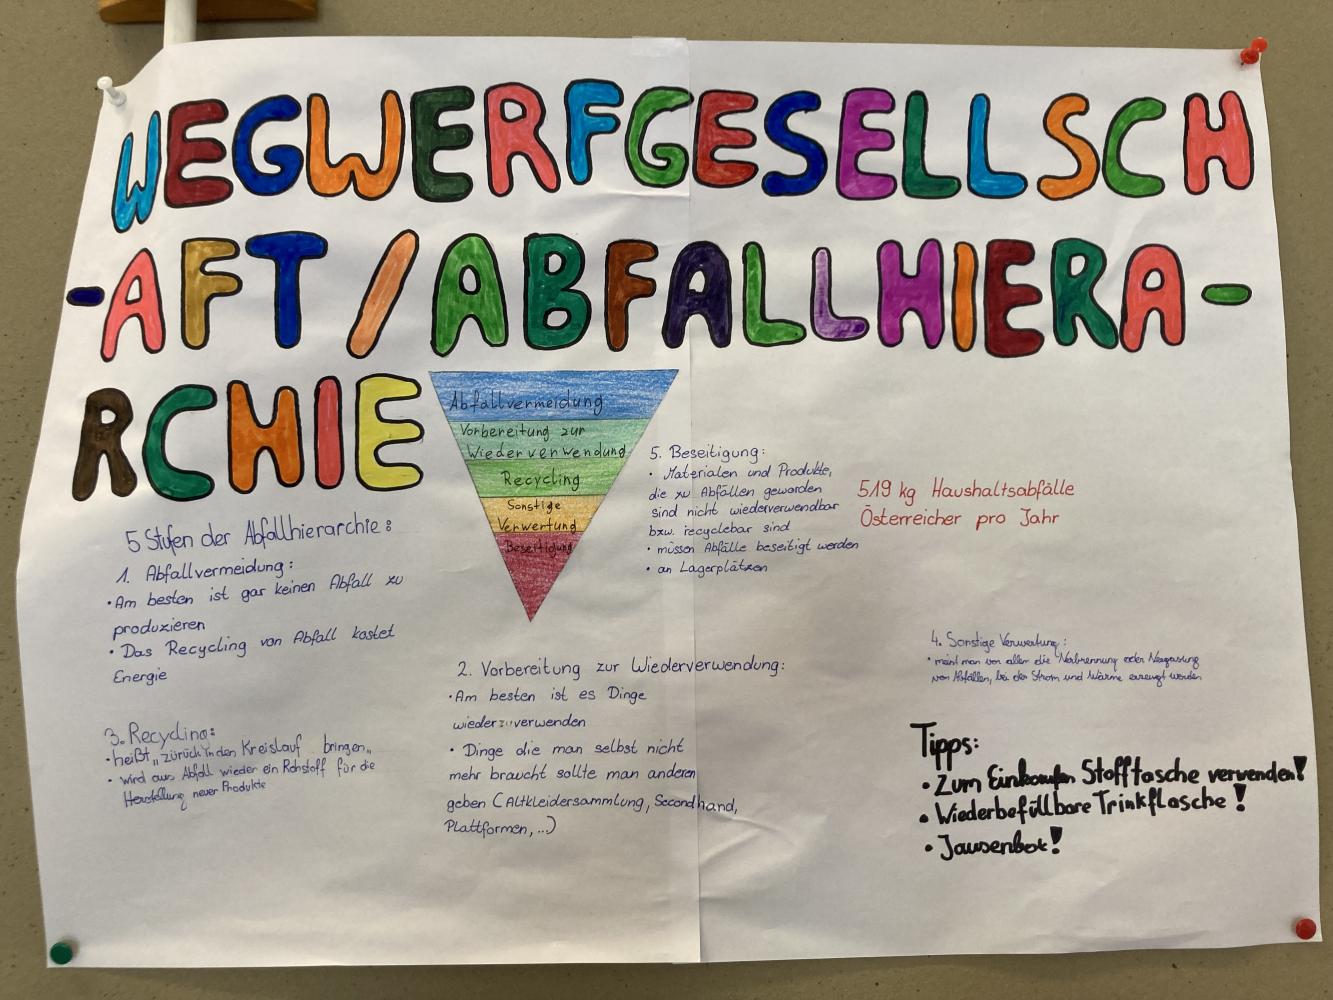 WEGWERFGESELLSCH
-AFT / ABFALLHIERA-
RCHIE
Abfallvermeidung
Vorbereitung zur
Wiederverwendung
Recycling
Sonstige
Verwertung
Beseitigung
5 Stufen der Abfallhierarchie:
1. Abfallvermeidung:
• Am besten ist gar keinen Abfall zu
produzieren
• Das Recycling von Abfall kostet
Energie
5. Beseitigung:
• Materialen und Produkte,
die zu Abfällen geworden
sind nicht wiederverwendbar
bzw. recyclebar sind
• müssen Abfälle beseitigt werden
• an Lagerplätzen
519 kg Haushaltsabfälle
Österreicher pro Jahr
2. Vorbereitung zur Wiederverwendung:
• Am besten ist es Dinge
wiederzuverwenden
• Dinge die man selbst nicht
mehr braucht sollte man anderen
geben (Altkleidersammlung, Secondhand,
Plattformen, ...)
3. Recycling:
• heißt „zurück in den Kreislauf bringen„
• wird aus Abfall wieder ein Rohstoff für die
Herstellung neuer Produkte
4. Sonstige Verwertung:
• meint man vor allem die Verbrennung oder Vergasung
von Abfällen, bei der Strom und Wärme erzeugt werden
Tipps:
• Zum Einkaufen Stofftasche verwenden!
• Wiederbefüllbare Trinkflasche!
• Jausenbox!